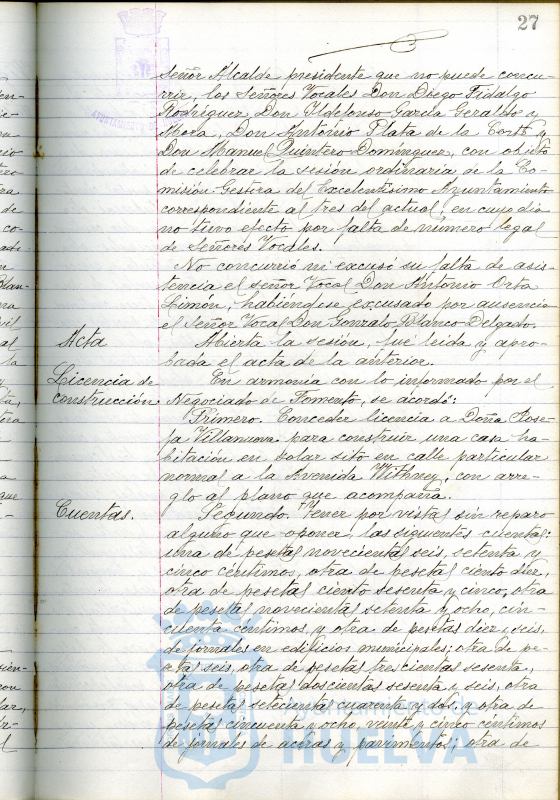 27
señor Alcalde presidente que no puede concu-
rrir, los Señores Vocales Don Diego Fidalgo
Rodríguez, Don Ildefonso García Geraldo y
Mora, Don Antonio Plata de la Corte y
Don Manuel Quintero Domínguez, con objeto
de celebrar la sesión ordinaria de la Co-
misión Gestora del Excelentísimo Ayuntamiento
correspondiente al tres del actual, en cuyo día
no tuvo efecto por falta de número legal
de Señores Vocales.
No concurrió ni excusó su falta de asis-
tencia el señor Vocal Don Antonio Orta
Limón, habiéndose excusado por ausencia
el Señor Vocal Don Gonzalo Blanco Delgado.
Acta
Abierta la sesión, fué leida y apro-
bada el acta de la anterior.
Licencia de
construcción.
En armonía con lo informado por el
Negociado de Fomento, se acordó:
Primero. Conceder licencia a Doña Jose-
fa Villanueva para construir una casa ha-
bitación en solar sito en calle particular
normal a la Avenida Withney, con arre-
glo al plano que acompaña.
Cuentas.
Segundo. Tener por vistas sin reparo
alguno que oponer, las siguientes cuentas:
una de pesetas novecientas seis, setenta y
cinco céntimos, otra de pesetas ciento diez,
otra de pesetas ciento sesenta y cinco, otra
de pesetas novecientas setenta y ocho, cin-
cuenta céntimos, y otra de pesetas diez y seis,
de jornales en edificios municipales; otra de pe-
setas seis, otra de pesetas trescientas sesenta,
otra de pesetas doscientas sesenta y seis, otra
de pesetas setecientas cuarenta y dos, y otra de
pesetas cincuenta y ocho, veinte y cinco céntimos
de jornales de aceras y pavimentos; otra de
HUELVA